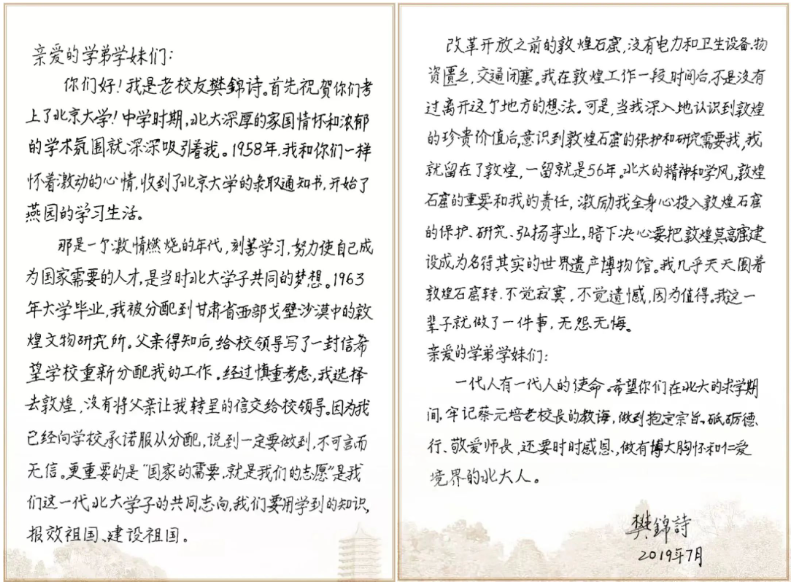 亲爱的学弟学妹们：
你们好！我是老校友樊錦诗。首先祝贺你们考
上了北京大学！中学时期，北大深厚的家国情怀和浓郁
的学术氛围就深深吸引着我。1958年，我和你们一样
怀着激动的心情，收到了北京大学的录取通知书，开始了
燕园的学习生活。
那是一个激情燃烧的年代，刻苦学习，努力使自己成
为国家需要的人才，是当时北大学子共同的梦想。1963
年大学毕业，我被分配到甘肃省西部戈壁沙漠中的敦
煌文物研究所。父亲得知后，给校领导写了一封信希
望学校重新分配我的工作。经过慎重考虑，我选择
去敦煌，没有将父亲让我转呈的信交给校领导。因为我
已经向学校承诺服从分配，说到一定要做到，不可言而
无信。更重要的是“国家的需要，就是我们的志愿”是我
们这一代北大学子的共同志向，我们要用学到的知识，
报效祖国、建设祖国。
改革开放之前的敦煌石窟，没有电力和卫生设备，物
资匮乏，交通闭塞。我在敦煌工作一段时间后，不是没有
过离开这个地方的想法。可是，当我深入地认识到敦煌
的珍贵价值后，意识到敦煌石窟的保护和研究需要我，我
就留在了敦煌，一留就是56年。北大的精神和学风，敦煌
石窟的重要和我的责任，激励我全身心投入敦煌石窟
的保护、研究、弘扬事业，暗下决心要把敦煌莫高窟建
设成为名符其实的世界遗产博物馆。我几乎天天围着
敦煌石窟转，不觉寂寞，不觉遗憾，因为值得。我这一
辈子就做了一件事，无怨无悔。
亲爱的学弟学妹们：
一代人有一代人的使命。希望你们在北大的求学期
间，牢记蔡元培老校长的教诲，做到抱定宗旨、砥砺德
行、敬爱师长，还要时时感恩、做有博大胸怀和仁爱
境界的北大人。
樊錦詩
2019年7月